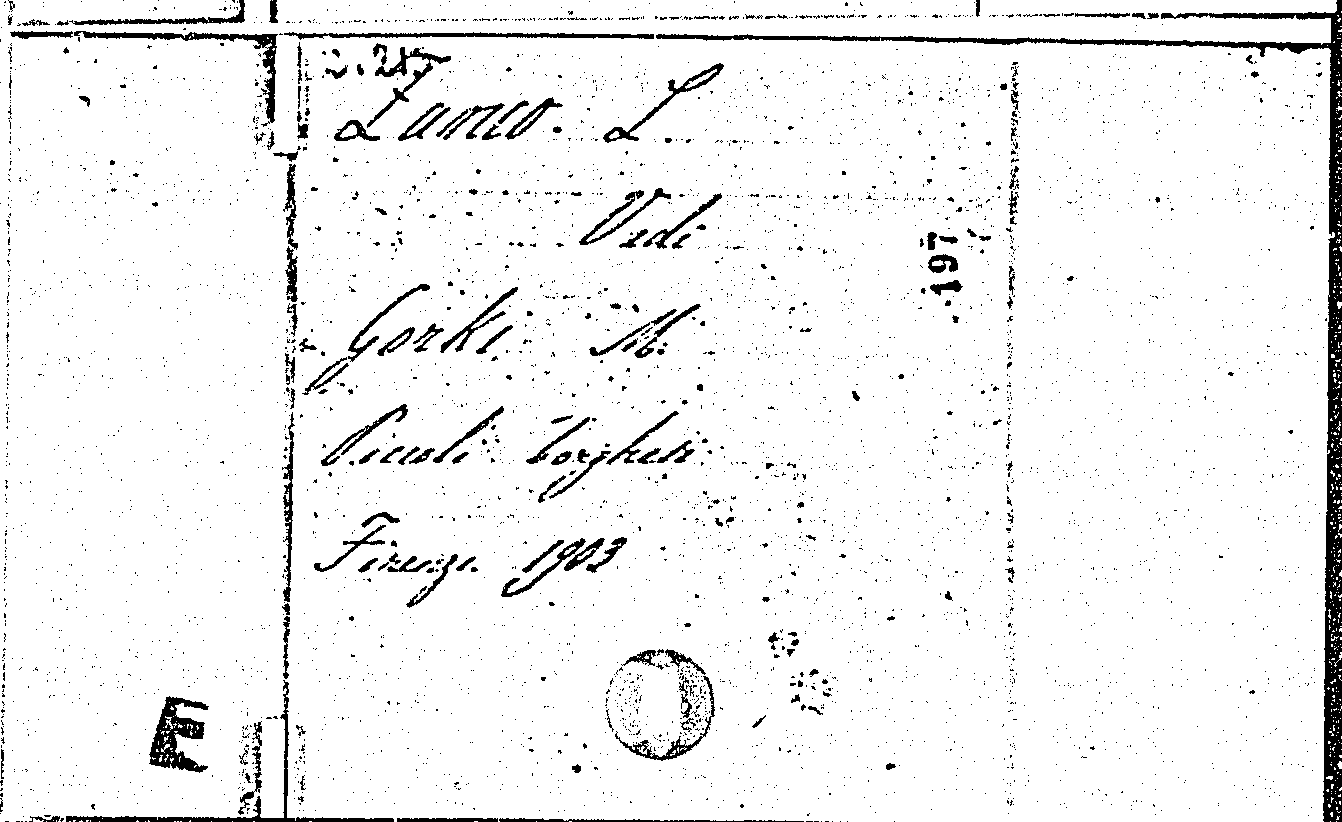 Zanco. L.
Vedi
Gorki M.
Piccoli borghesi.
Firenze. 1903
197
E